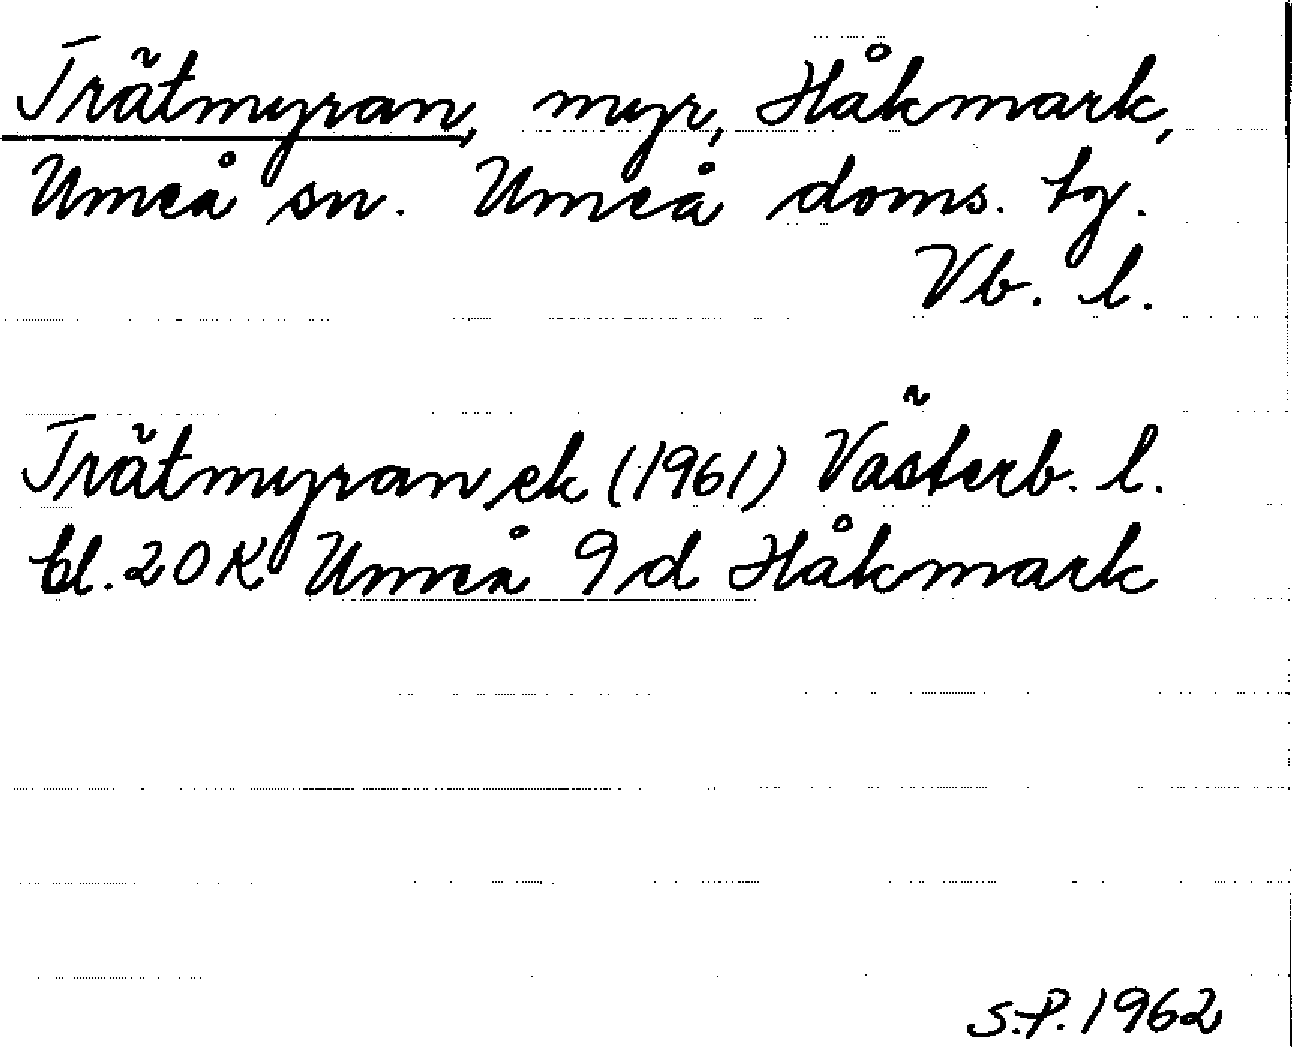 Trätmyran, myr, Håkmark,
Umeå sn. Umeå doms. tg.
Vb. l.
Trätmyran ek (1961) Västerb. l.
bl. 20 K Umeå 9 d Håkmark
S.P. 1962